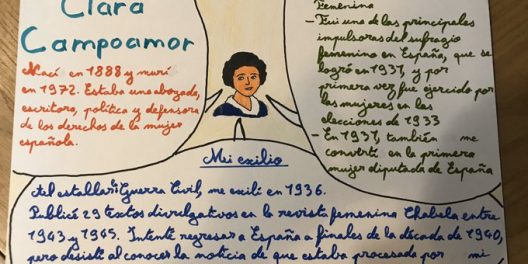 Clara
Campoamor
Nací en 1888 y murí
en 1972. Estaba una abogada,
escritora, política y defensora
de los derechos de la mujer
española.
Femenina
- Fui una de las principales
impulsoras del sufragio
femenino en España, que se
logró en 1931, y por
primera vez fue ejercido por
las mujeres en las
elecciones de 1933
- En 1931, también me
convirtí en la primera
mujer diputada de España
Mi exilio
Al estallar la Guerra Civil, me exilié en 1936.
Publicé 29 textos divulgativos en la revista femenina Chabela entre
1943 y 1945. Intenté regresar a España a finales de la década de 1940,
pero desistí al conocer la noticia de que estaba procesada por mi